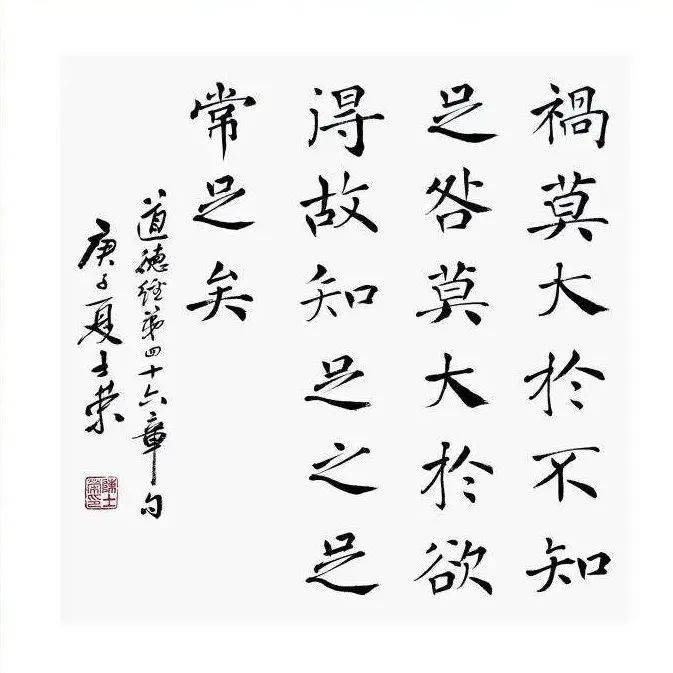 禍莫大於不知
足咎莫大於欲
得故知足之足
常足矣
道德经第四十六章句
庚子夏士荣
陳士荣印